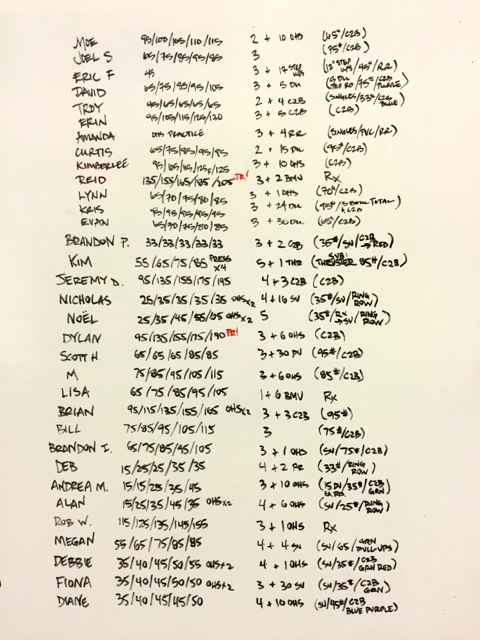 MOE 95/100/105/110/115 2 + 10 OHS (65#/C2B)
JOEL S 65/75/85/95/85 3 (75#/C2B)
ERIC F 45 3 + 12 STEP UPS (12" STEP UPS/45#/RR)
DAVID 65/75/85/95/105 3 + 5 DU (75#/C2B PURPLE)
TROY 45/65/65/65/65 2 + 4 C2B (SINGLES/33#/C2B BLUE)
ERIN 95/105/115/125/120 3 + 5 C2B (C2B)
AMANDA OHS PRACTICE 3 + 4 RR (SINGLES/PVC/RR)
CURTIS 65/75/85/95/95 2 + 15 DU (95#/C2B)
KIMBERLEE 95/105/115/125/125 3 + 10 OHS (C2B)
REID 135/155/165/185/205 PR! 3 + 2 BMU Rx
LYNN 65/70/75/80/85 3 + 1 OHS (70#/C2B)
KRIS 85/95/95/95/95 3 + 24 DU (95#/3 ROUNDS TOTAL/C2B)
EVAN 65/70/75/80/85 5 + 30 DU (65#/C2B)
BRANDON P. 33/33/33/33/33 3 + 2 C2B (35#/SU/C2B → RED)
KIM 55/65/75/85 PRESS x4 5 + 1 THR (SUB THRUSTER 85#/C2B)
JEREMY D. 95/135/155/175/195 4 + 3 C2B (C2B)
NICHOLAS 25/35/35/35/35 OHS x2 4 + 16 SU (35#/SU/RING ROW)
NOËL 25/35/45/55/65 OHS x2 5 (35#/Rx → SU/RING ROW)
DYLAN 95/135/155/175/190 PR! 3 + 6 OHS (C2B)
SCOTT H. 65/65/65/85/85 3 + 30 DU (95#/C2B)
M 75/85/95/105/115 3 + 6 OHS (85#/C2B)
LISA 65/75/85/95/105 1 + 6 BMU Rx
BRIAN 95/115/135/155/165 OHS x2 3 + 3 C2B (95#)
BILL 75/85/95/105/115 3 (75#/C2B)
BRANDON I. 65/75/85/95/105 3 + 1 OHS (SU/75#/C2B)
DEB 15/25/25/35/35 4 + 2 RR (33#/RING ROW)
ANDREA M. 15/15/25/35/45 3 + 10 OHS (15 DU/35#/C2B GRN)
ALAN 15/25/35/45/35 OHS x2 4 + 6 OHS (SU/25#/RING ROW)
ROB W. 115/125/135/145/155 3 + 1 OHS Rx
MEGAN 55/65/75/85/85 4 + 4 SU (SU/65/GRN PULL-UPS)
DEBBIE 35/40/45/50/55 OHS x2 4 + 1 OHS (SU/35#/C2B GRN RED)
FIONA 35/40/45/50/50 OHS x2 3 + 30 SU (SU/35#/C2B GRN)
DIANE 35/40/45/45/50 4 + 10 OHS (SU/45#/C2B BLUE PURPLE)